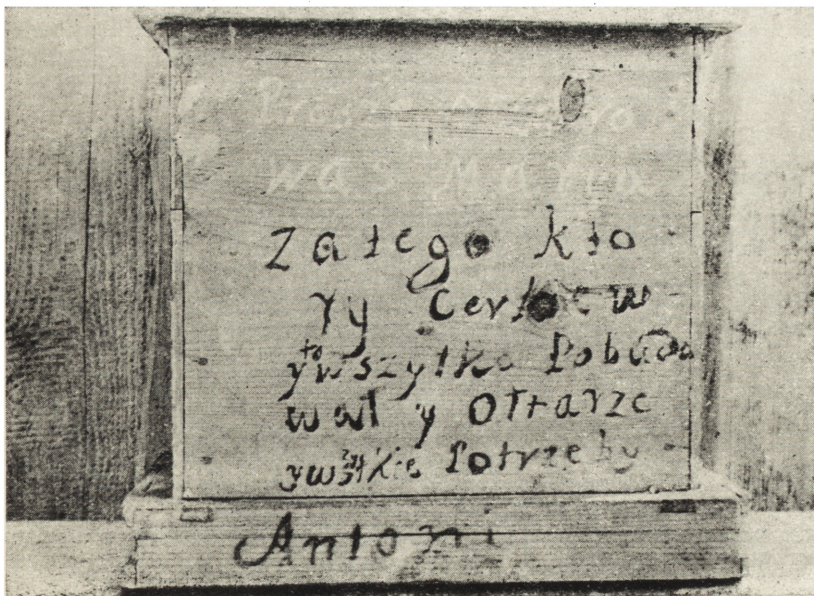 was Marya
Zatego kto
ry Cerkew
y to wszytko Pobudo
wał y Ołtarze
y wszytkie Potrzeby
Antoni